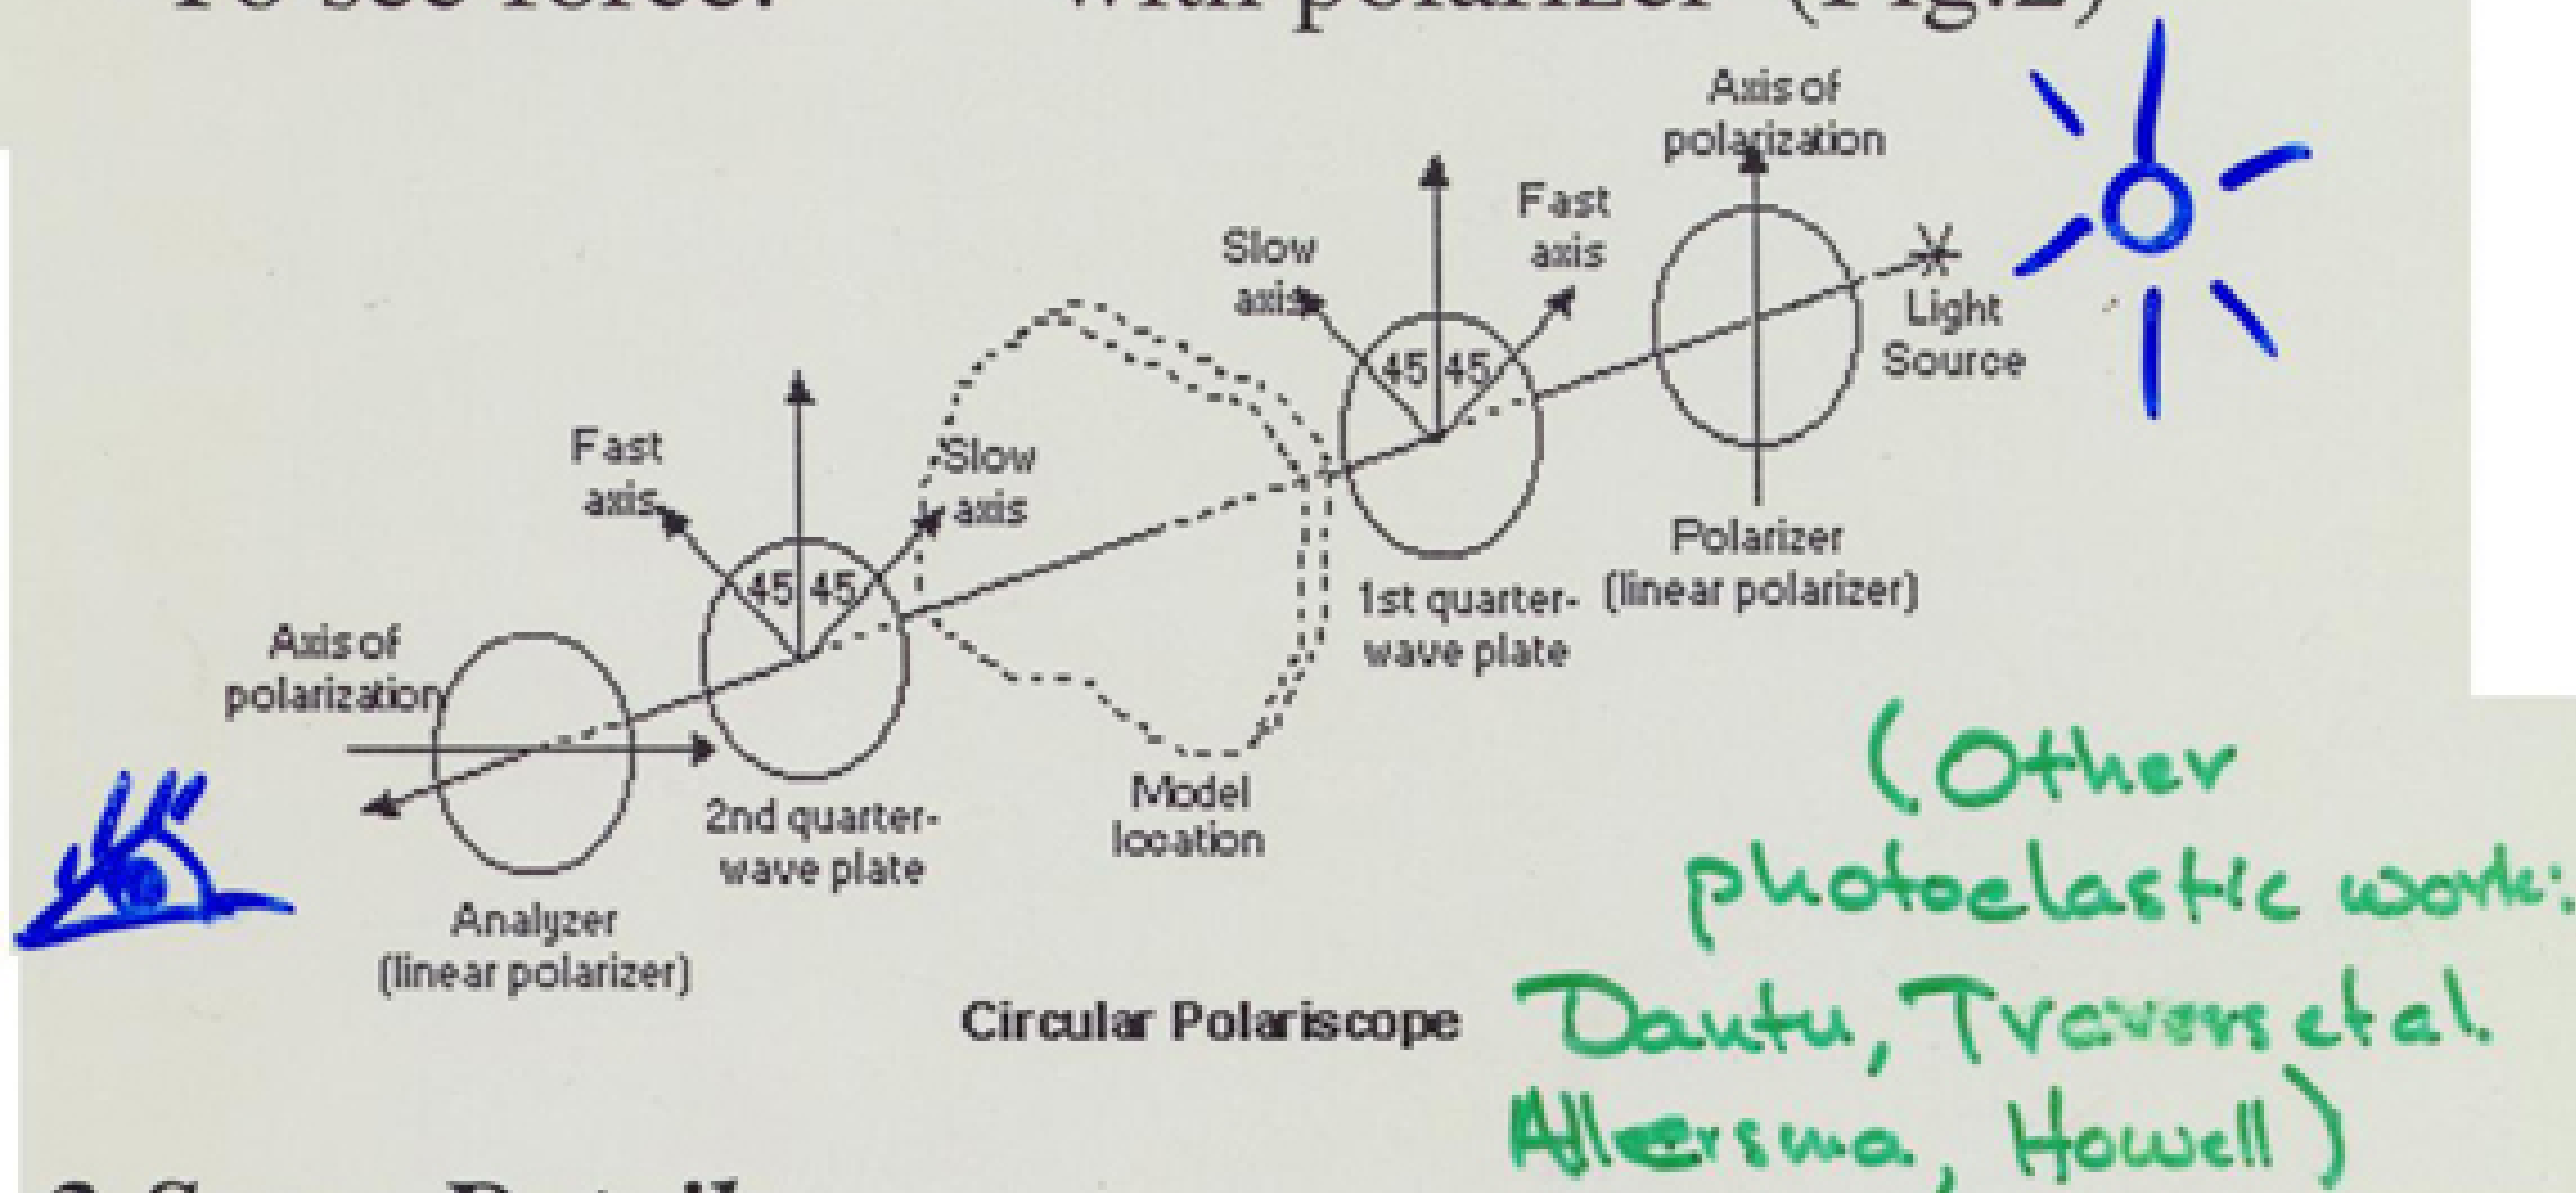 To see force:
with polarizer (Fig.2)
Axis of
polarization
Fast
axis
Slow
axis
45 45
Light
Source
Polarizer
(linear polarizer)
1st quarter-
wave plate
Fast
axis
Slow
axis
45 45
Model
location
2nd quarter-
wave plate
Axis of
polarization
Analyzer
(linear polarizer)
Circular Polariscope
(Other
photoelastic work:
Dantu, Travers et al.
Allersma, Howell)